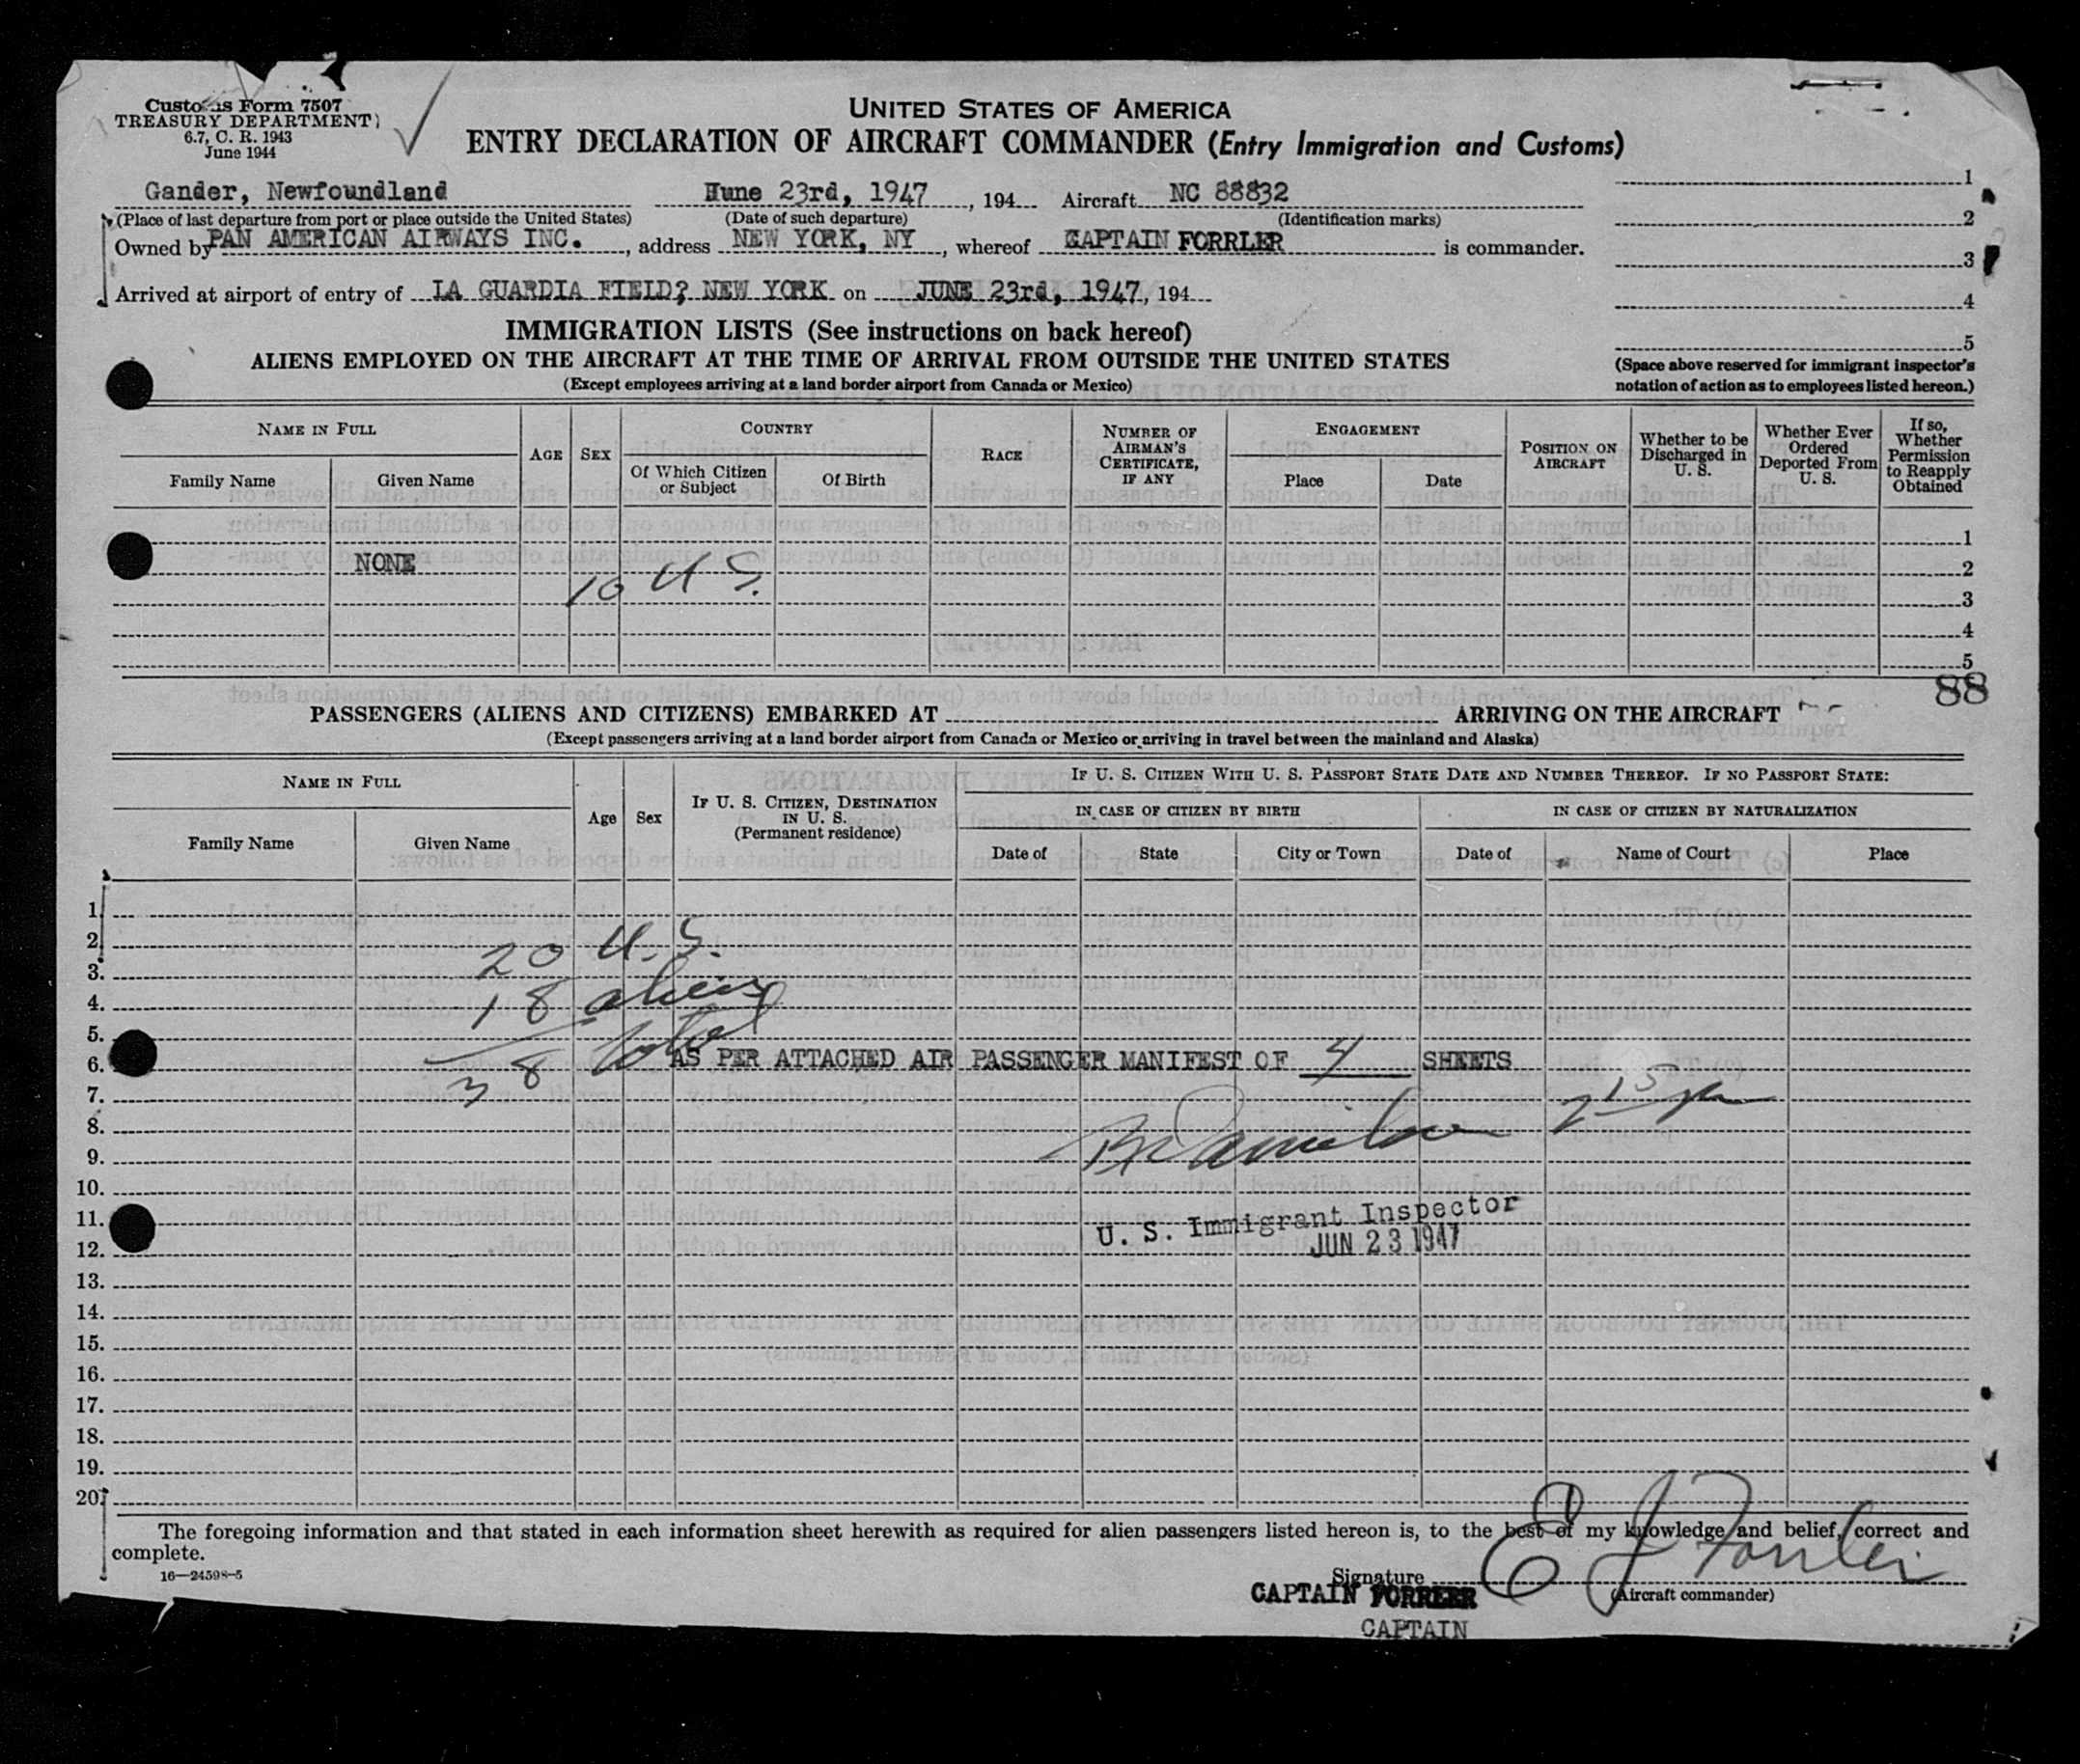 Customs Form 7507
TREASURY DEPARTMENT
6.7, C. R. 1943
June 1944
UNITED STATES OF AMERICA
ENTRY DECLARATION OF AIRCRAFT COMMANDER (Entry Immigration and Customs)
Gander, Newfoundland June 23rd, 1947, 194 Aircraft NC 88832
(Place of last departure from port or place outside the United States) (Date of such departure) (Identification marks)
Owned by PAN AMERICAN AIRWAYS INC., address NEW YORK, NY, whereof CAPTAIN FORRLER is commander.
Arrived at airport of entry of LA GUARDIA FIELD? NEW YORK on JUNE 23rd, 1947, 194
1
2
3
4
5
(Space above reserved for immigrant inspector's notation of action as to employees listed hereon.)
IMMIGRATION LISTS (See instructions on back hereof)
ALIENS EMPLOYED ON THE AIRCRAFT AT THE TIME OF ARRIVAL FROM OUTSIDE THE UNITED STATES
(Except employees arriving at a land border airport from Canada or Mexico)
NAME IN FULL
Family Name Given Name
AGE SEX
COUNTRY
Of Which Citizen or Subject Of Birth
RACE
NUMBER OF AIRMAN'S CERTIFICATE, IF ANY
ENGAGEMENT
Place Date
POSITION ON AIRCRAFT
Whether to be Discharged in U. S.
Whether Ever Ordered Deported From U. S.
If so, Whether Permission to Reapply Obtained
1
NONE 2
10 U S. 3
4
5
88
PASSENGERS (ALIENS AND CITIZENS) EMBARKED AT ARRIVING ON THE AIRCRAFT
(Except passengers arriving at a land border airport from Canada or Mexico or arriving in travel between the mainland and Alaska)
NAME IN FULL
Family Name Given Name
Age Sex
IF U. S. CITIZEN, DESTINATION IN U. S. (Permanent residence)
IF U. S. CITIZEN WITH U. S. PASSPORT STATE DATE AND NUMBER THEREOF. IF NO PASSPORT STATE:
IN CASE OF CITIZEN BY BIRTH IN CASE OF CITIZEN BY NATURALIZATION
Date of State City or Town Date of Name of Court Place
1.
2. 20 U. S.
3.
4. 18 aliens
5.
6. 38 total AS PER ATTACHED AIR PASSENGER MANIFEST OF 4 SHEETS
7. 2 15 pm
8.
9.
10.
11. U. S. Immigrant Inspector
12. JUN 23 1947
13.
14.
15.
16.
17.
18.
19.
20.
The foregoing information and that stated in each information sheet herewith as required for alien passengers listed hereon is, to the best of my knowledge and belief, correct and
complete.
16—24598-5
Signature E J Forrler
CAPTAIN FORRLER (Aircraft commander)
CAPTAIN